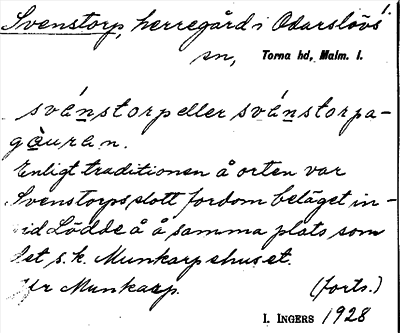 1.
Svenstorp, herregård i Odarslövs
sn, Torna hd, Malm. l.
svánstorp eller svánstorpa-
gå̀uran.
Enligt traditionen å orten var
Svenstorps slott fordom beläget in-
vid Lödde å å samma plats som
det s.k. Munkarpshuset.
Jfr Munkarp. (forts.)
I. INGERS 1928